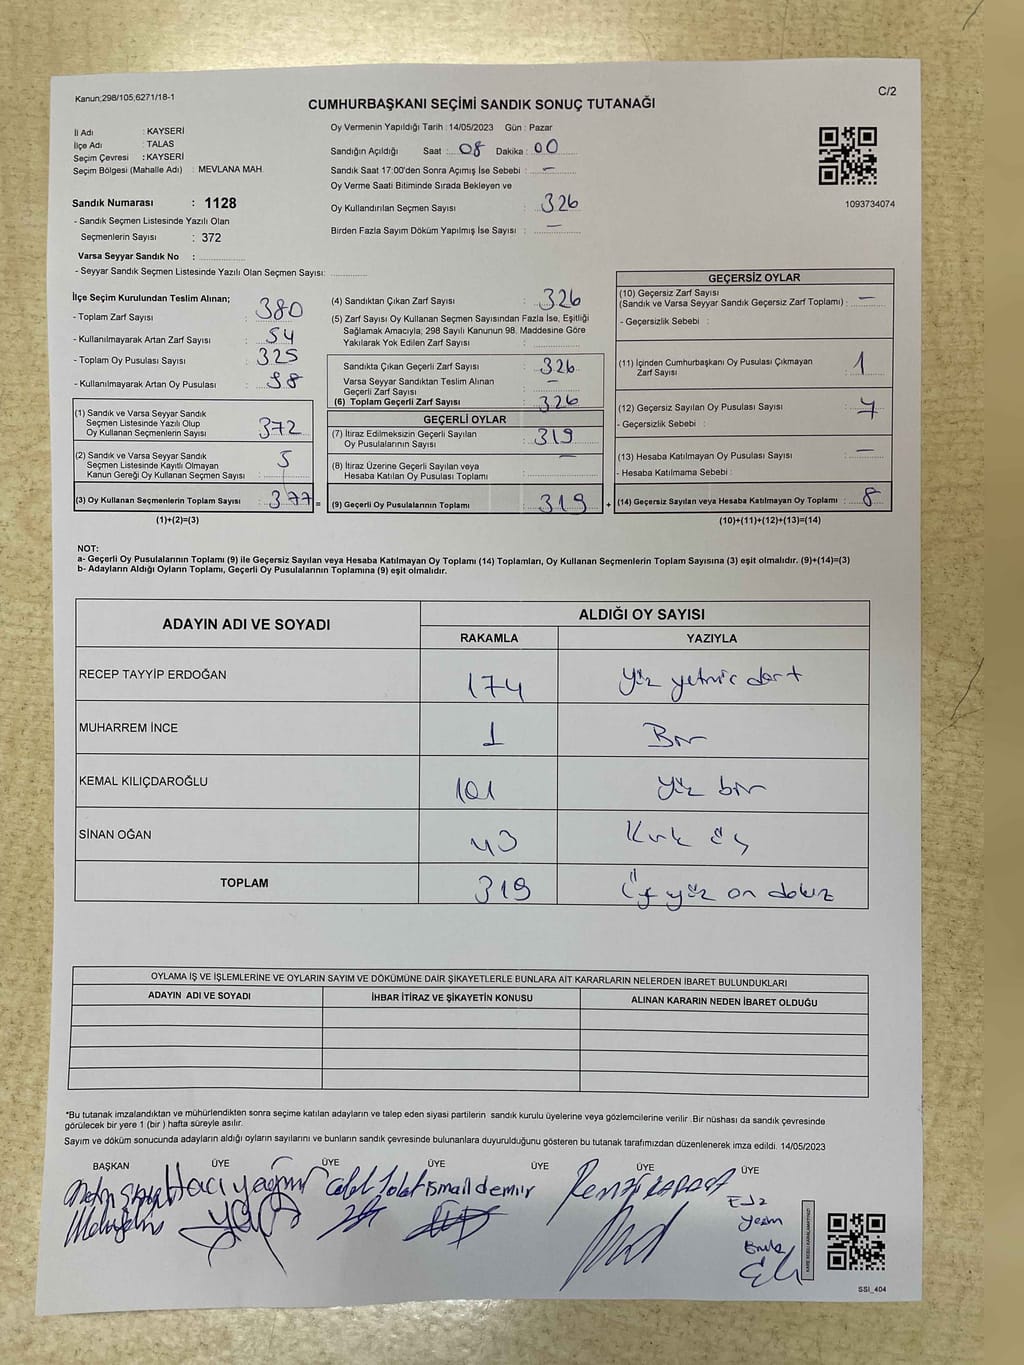 Kanun;298/105;6271/18-1
C/2
CUMHURBAŞKANI SEÇİMİ SANDIK SONUÇ TUTANAĞI
İl Adı : KAYSERİ
İlçe Adı : TALAS
Seçim Çevresi : KAYSERİ
Seçim Bölgesi (Mahalle Adı) : MEVLANA MAH.
Sandık Numarası : 1128
- Sandık Seçmen Listesinde Yazılı Olan
Seçmenlerin Sayısı : 372
Varsa Seyyar Sandık No :
- Seyyar Sandık Seçmen Listesinde Yazılı Olan Seçmen Sayısı:
Oy Vermenin Yapıldığı Tarih : 14/05/2023 Gün : Pazar
Sandığın Açıldığı Saat : 08 Dakika : 00
Sandık Saat 17:00'den Sonra Açımış İse Sebebi : -
Oy Verme Saati Bitiminde Sırada Bekleyen ve
Oy Kullandırılan Seçmen Sayısı : 326
Birden Fazla Sayım Döküm Yapılmış İse Sayısı : -
1093734074
İlçe Seçim Kurulundan Teslim Alınan;
- Toplam Zarf Sayısı : 380
- Kullanılmayarak Artan Zarf Sayısı : 54
- Toplam Oy Pusulası Sayısı : 325
- Kullanılmayarak Artan Oy Pusulası : 98
(1) Sandık ve Varsa Seyyar Sandık
Seçmen Listesinde Yazılı Olup
Oy Kullanan Seçmenlerin Sayısı : 372
(2) Sandık ve Varsa Seyyar Sandık
Seçmen Listesinde Kayıtlı Olmayan
Kanun Gereği Oy Kullanan Seçmen Sayısı : 5
(3) Oy Kullanan Seçmenlerin Toplam Sayısı : 377 =
(1)+(2)=(3)
(4) Sandıktan Çıkan Zarf Sayısı : 326
(5) Zarf Sayısı Oy Kullanan Seçmen Sayısından Fazla İse, Eşitliği
Sağlamak Amacıyla; 298 Sayılı Kanunun 98. Maddesine Göre
Yakılarak Yok Edilen Zarf Sayısı :
Sandıkta Çıkan Geçerli Zarf Sayısı : 326
Varsa Seyyar Sandıktan Teslim Alınan
Geçerli Zarf Sayısı : -
(6) Toplam Geçerli Zarf Sayısı : 326
GEÇERLİ OYLAR
(7) İtiraz Edilmeksizin Geçerli Sayılan
Oy Pusulalarının Sayısı : 319
(8) İtiraz Üzerine Geçerli Sayılan veya
Hesaba Katılan Oy Pusulası Toplamı : -
(9) Geçerli Oy Pusulalarının Toplamı : 319 +
GEÇERSİZ OYLAR
(10) Geçersiz Zarf Sayısı
(Sandık ve Varsa Seyyar Sandık Geçersiz Zarf Toplamı) : -
- Geçersizlik Sebebi :
(11) İçinden Cumhurbaşkanı Oy Pusulası Çıkmayan
Zarf Sayısı : 1
(12) Geçersiz Sayılan Oy Pusulası Sayısı : 7
- Geçersizlik Sebebi :
(13) Hesaba Katılmayan Oy Pusulası Sayısı : -
- Hesaba Katılmama Sebebi :
(14) Geçersiz Sayılan veya Hesaba Katılmayan Oy Toplamı : 8
(10)+(11)+(12)+(13)=(14)
NOT:
a- Geçerli Oy Pusulalarının Toplamı (9) ile Geçersiz Sayılan veya Hesaba Katılmayan Oy Toplamı (14) Toplamları, Oy Kullanan Seçmenlerin Toplam Sayısına (3) eşit olmalıdır. (9)+(14)=(3)
b- Adayların Aldığı Oyların Toplamı, Geçerli Oy Pusulalarının Toplamına (9) eşit olmalıdır.
ADAYIN ADI VE SOYADI
ALDIĞI OY SAYISI
RAKAMLA YAZIYLA
RECEP TAYYİP ERDOĞAN 174 Yüz yetmiş dört
MUHARREM İNCE 1 Bir
KEMAL KILIÇDAROĞLU 101 Yüz bir
SİNAN OĞAN 43 Kırk üç
TOPLAM 319 Üç yüz on dokuz
OYLAMA İŞ VE İŞLEMLERİNE VE OYLARIN SAYIM VE DÖKÜMÜNE DAİR ŞİKAYETLERLE BUNLARA AİT KARARLARIN NELERDEN İBARET BULUNDUKLARI
ADAYIN ADI VE SOYADI İHBAR İTİRAZ VE ŞİKAYETİN KONUSU ALINAN KARARIN NEDEN İBARET OLDUĞU
*Bu tutanak imzalandıktan ve mühürlendikten sonra seçime katılan adayların ve talep eden siyasi partilerin sandık kurulu üyelerine veya gözlemcilerine verilir .Bir nüshası da sandık çevresinde
görülecek bir yere 1 (bir ) hafta süreyle asılır.
Sayım ve döküm sonucunda adayların aldığı oyların sayılarını ve bunların sandık çevresinde bulunanlara duyurulduğunu gösteren bu tutanak tarafımızdan düzenlenerek imza edildi. 14/05/2023
BAŞKAN ÜYE ÜYE ÜYE ÜYE ÜYE ÜYE
Hacı yağmur ismail demir
SSI_404